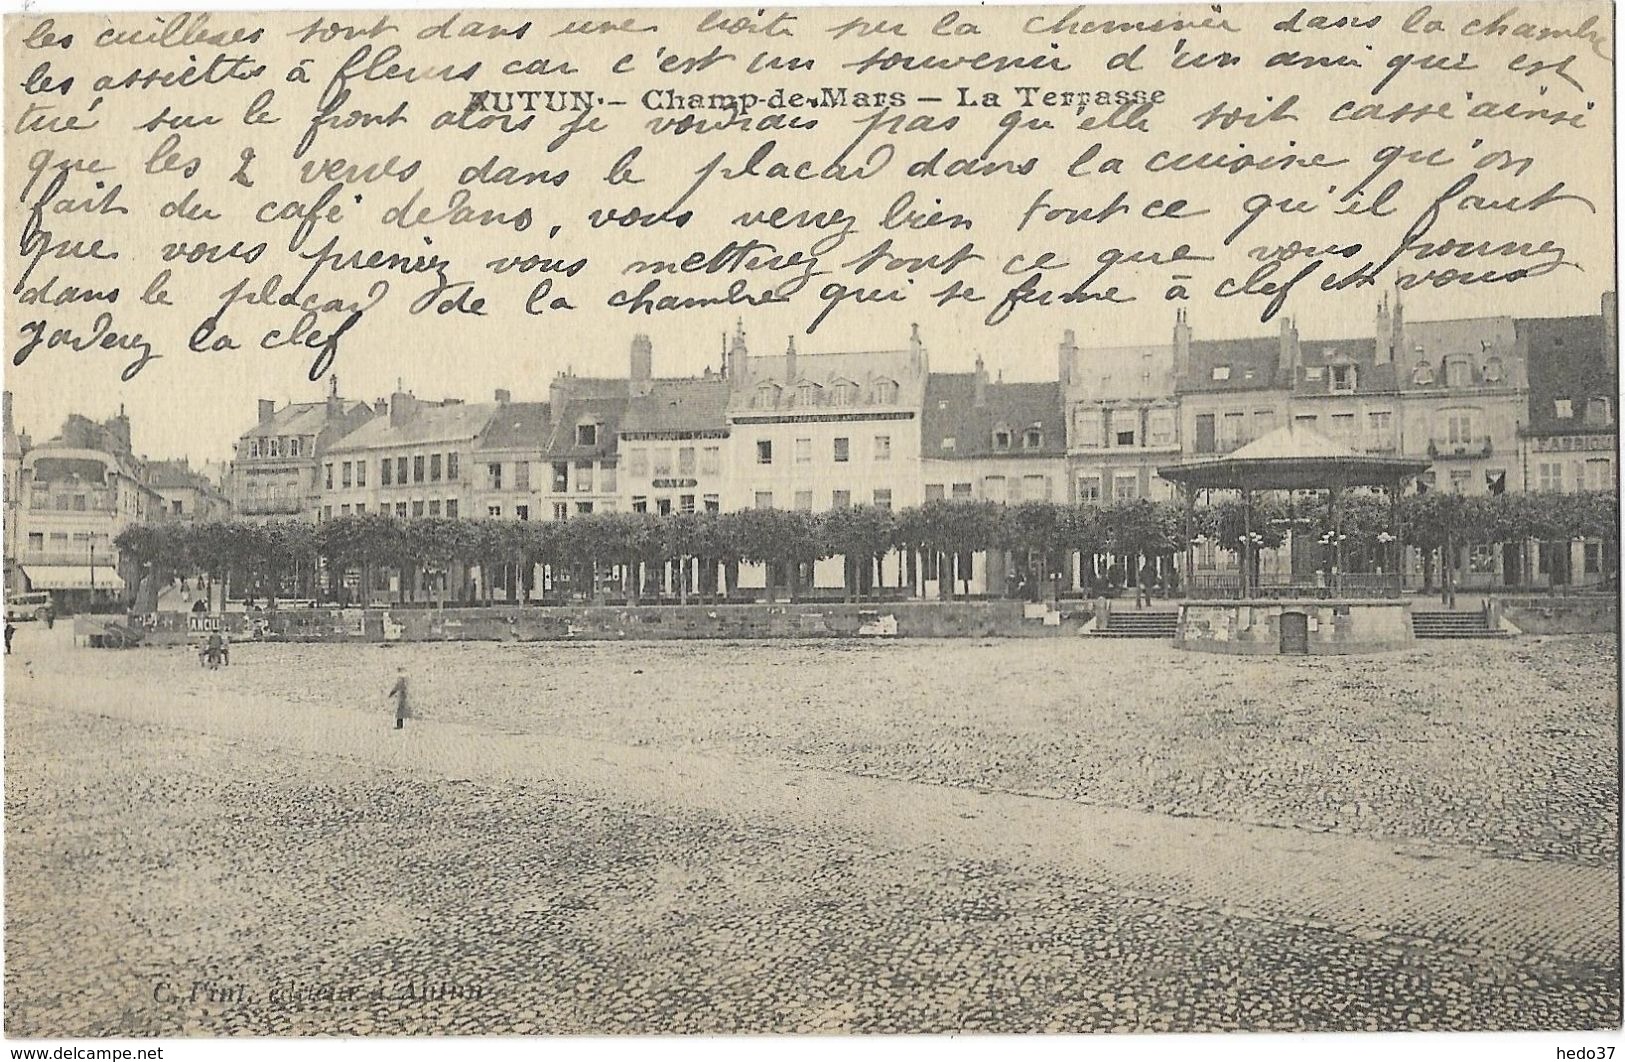 les cuilleres sont dans une boite sur la cheminée dans la chambre
les assiettes à fleurs car c'est un souvenir d'un ami qui est
AUTUN - Champ-de-Mars - La Terrasse
tué sur le front alors je voudrais pas qu'elle soit cassé ainsi
que les 2 verres dans le placard dans la cuisine qu'on
fait du café dedans, vous verrez bien tout ce qu'il faut
que vous preniez vous metterez tout ce que vous pourrez
dans le placard de la chambre qui se ferme à clef et vous
garderez la clef
RESTAURANT
CAFÉ
FABRIQUE
CAFÉ FRANÇAIS
C. Pint, éditeur à Autun
www.delcampe.net
hedo37